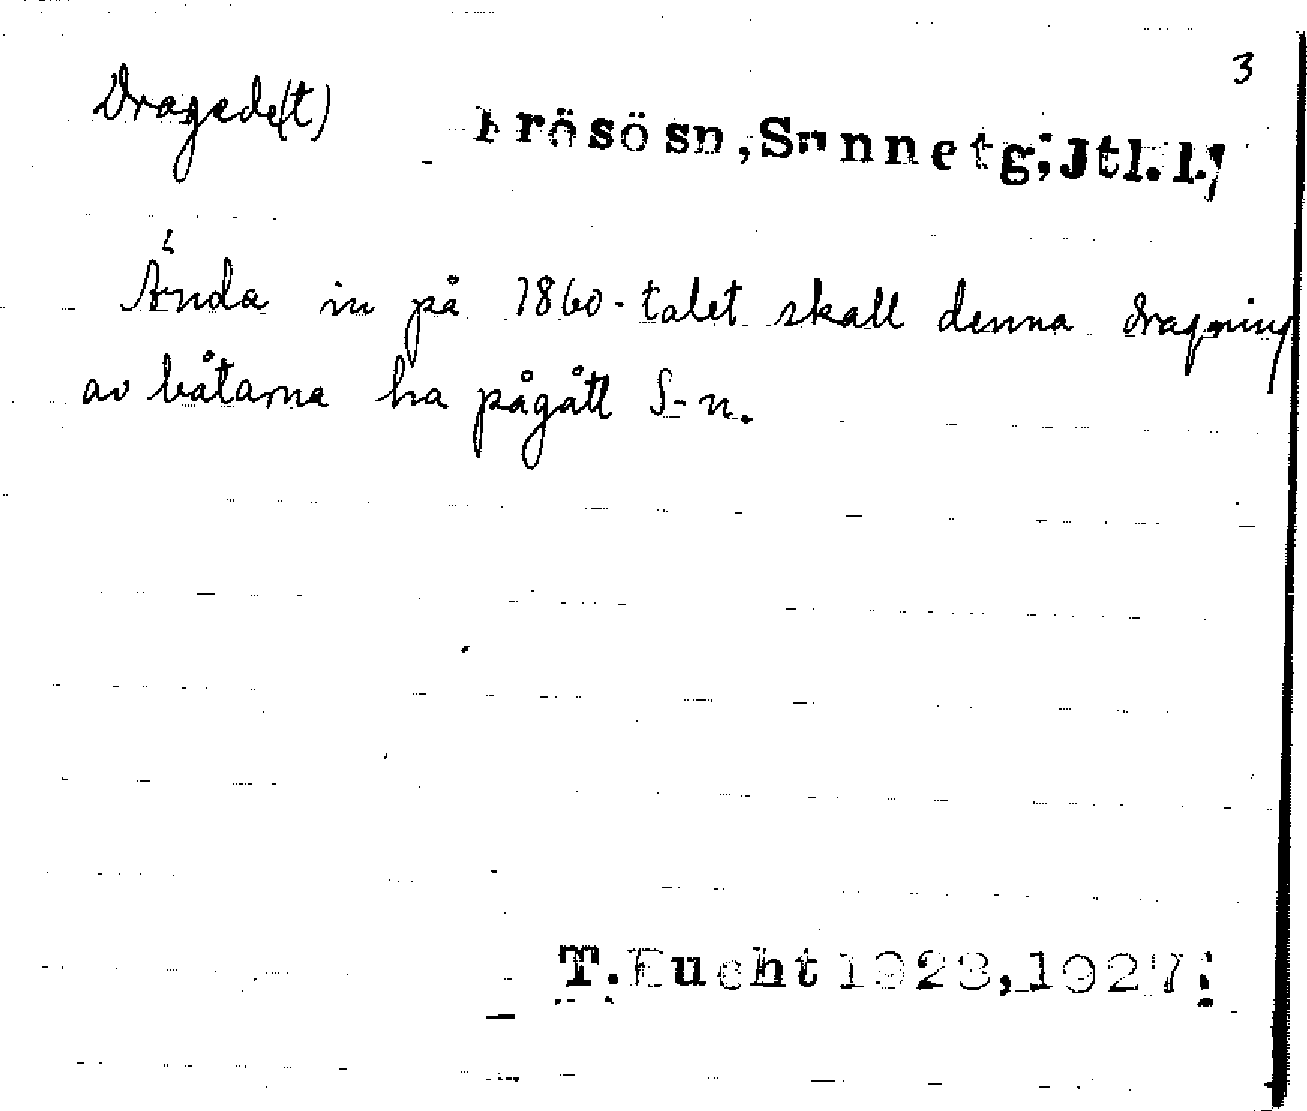 3
Dragede(t) Frösösn, Sunnetg; Jtl.l.;
Ända in på 1860-talet skall denna dragning
av båtarna ha pågått S-n.
T. Eucht 1923, 1927;